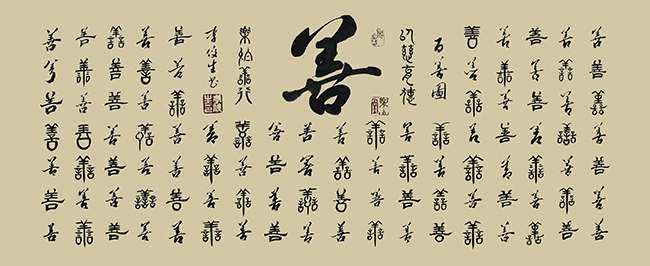 善善善善善善善
善善善善善善善
善善善善善善善
善善善善善善善
善善善善善善善
百善圖
善善善善
以慈德
善善善善
善
善善善善
善善善善
善善善善
善善善善
樂於善行
善善善善
李俊生书
善善善善
善善善善善善善
善善善善善善善
善善善善善善善
善善善善善善善
善善善善善善善